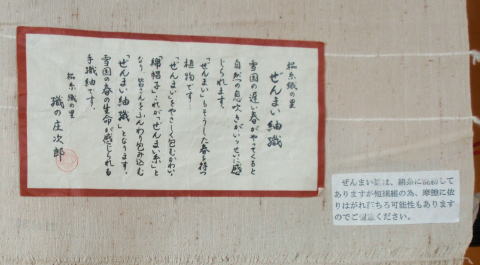 ぜんまい紬織
雪国の遅い春がやってくると
自然の息吹きがいっせいに感
じられます。
「ぜんまい」もそうした春を待つ
植物です。
「ぜんまい」をやさしく包むかわいい
「綿帽子」これが「ぜんまい糸」と
なり、皆さんをふんわり包み込む
「ぜんまい紬織」となります。
雪国の春の生命が感じられる
手織紬です。
織の里
織の庄次郎
ぜんまい は、絹糸に して
ありますが短繊維の為、摩擦に依
りはがれ落ちる可能性もあります
のでご留意ください。